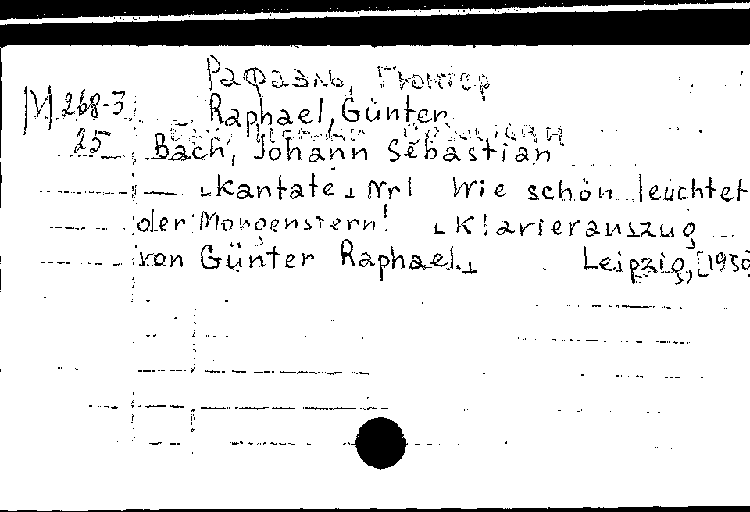 Рафаэль, Гюнтер
М 268-3 Raphael, Günter
25 Bach, Johann Sebastian
Kantate Nr1 Wie schön leuchtet
der Morgenstern! Klavierauszug
von Günter Raphael. Leipzig, [1950